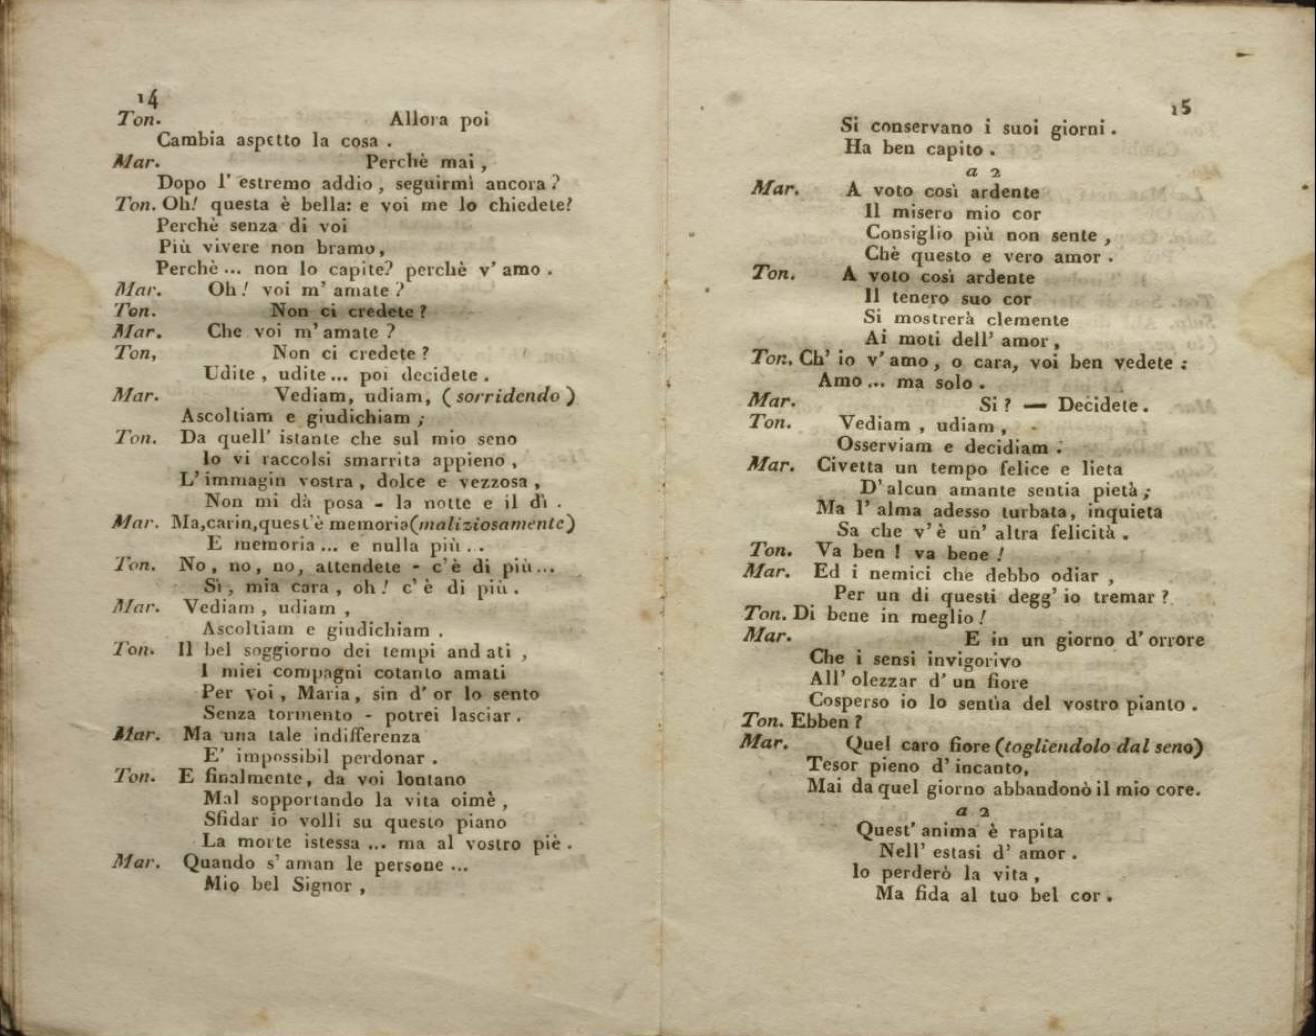 14
Ton. Allora poi
Cambia aspetto la cosa .
Mar. Perchè mai ,
Dopo l' estremo addio , seguirmi ancora ?
Ton. Oh! questa è bella: e voi me lo chiedete?
Perchè senza di voi
Più vivere non bramo,
Perchè ... non lo capite? perchè v' amo .
Mar. Oh! voi m' amate ?
Ton. Non ci credete ?
Mar. Che voi m' amate ?
Ton, Non ci credete ?
Udite , udite ... poi decidete .
Mar. Vediam, udiam, ( sorridendo )
Ascoltiam e giudichiam ;
Ton. Da quell' istante che sul mio seno
Io vi raccolsi smarrita appieno ,
L' immagin vostra , dolce e vezzosa ,
Non mi dà posa - la notte e il dì .
Mar. Ma,carin,quest'è memoria(maliziosamente)
E memoria ... e nulla più ..
Ton. No , no, no, attendete - c'è di più...
Sì, mia cara , oh ! c' è di più .
Mar. Vediam , udiam ,
Ascoltiam e giudichiam .
Ton. Il bel soggiorno dei tempi and ati ,
I miei compagni cotanto amati
Per voi , Maria , sin d' or lo sento
Senza tormento - potrei lasciar .
Mar. Ma una tale indifferenza
E' impossibil perdonar .
Ton. E finalmente, da voi lontano
Mal sopportando la vita oimè ,
Sfidar io volli su questo piano
La morte istessa ... ma al vostro piè .
Mar. Quando s' aman le persone ...
Mio bel Signor ,
15
Si conservano i suoi giorni .
Ha ben capito .
a 2
Mar. A voto così ardente
Il misero mio cor
Consiglio più non sente ,
Chè questo e vero amor .
Ton. A voto così ardente
Il tenero suo cor
Si mostrerà clemente
Ai moti dell' amor ,
Ton. Ch' io v' amo , o cara, voi ben vedete :
Amo ... ma solo .
Mar. Si ? — Decidete .
Ton. Vediam , udiam ,
Osserviam e decidiam .
Mar. Civetta un tempo felice e lieta
D' alcun amante sentia pietà ;
Ma l' alma adesso turbata, inquieta
Sa che v' è un' altra felicità .
Ton. Va ben ! va bene !
Mar. Ed i nemici che debbo odiar ,
Per un di questi degg' io tremar ?
Ton. Di bene in meglio !
Mar. E in un giorno d' orrore
Che i sensi invigorivo
All' olezzar d' un fiore
Cosperso io lo sentìa del vostro pianto .
Ton. Ebben ?
Mar. Quel caro fiore (togliendolo dal seno)
Tesor pieno d' incanto,
Mai da quel giorno abbandonò il mio core.
a 2
Quest' anima è rapita
Nell' estasi d' amor .
Io perderò la vita ,
Ma fida al tuo bel cor .